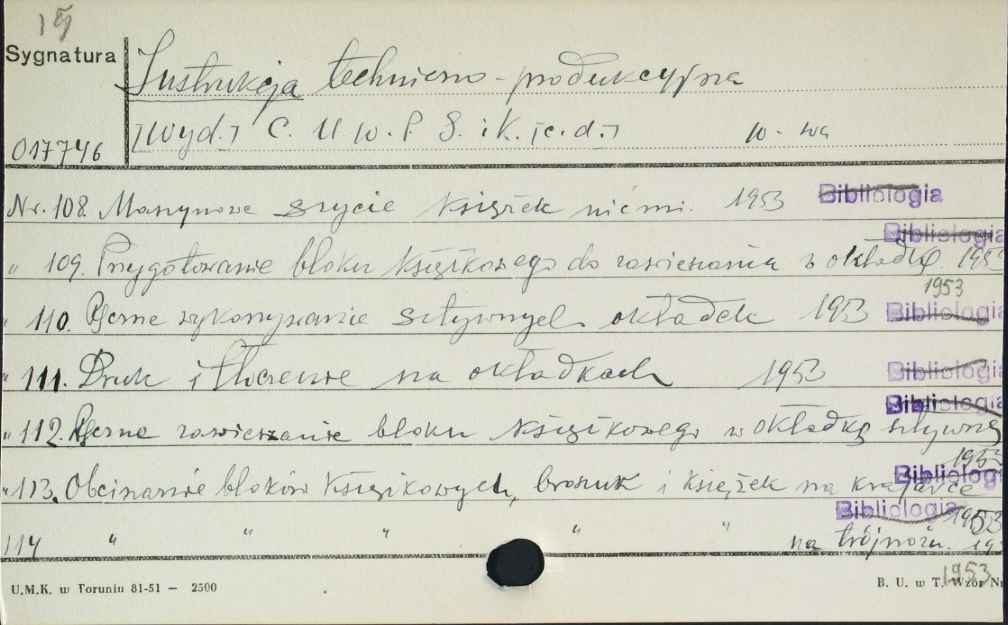 Sygnatura
Instrukcja techniczno-produkcyjna
[Wyd.] C. U. W. P. G. i K. [c.d.] W-wa
017746
Nr. 108 Maszynowe szycie książek nićmi. 1953 Bibliologia
Bibliologia
" 109. Przygotowanie bloku książkowego do zawieszania w okładkę. 1953
1953
" 110. Ręczne wykonywanie sztywnych okładek 1953 Bibliologia
" 111. Druk i tłoczenie na okładkach 1953 Bibliologia
Bibliologia
" 112. Ręczne zawieszanie bloku książkowego w okładkę sztywną
1953
Bibliolog
" 113. Obcinanie bloków książkowych, broszur i książek na krajarce
Bibliologia 1953
114 " " " " " na trójnożu. 19
1953
U.M.K. w Toruniu 81-51 — 2500
B. U. w T. Wzór Nr